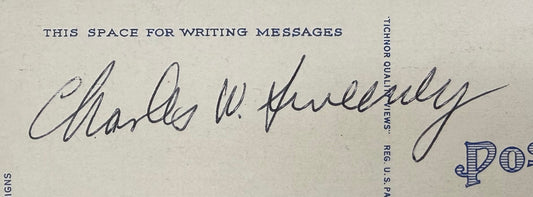 THIS SPACE FOR WRITING MESSAGES
Charles W. Sweeney
"TICHNOR QUALITY VIEWS" REG. U. S. PA
Pos
IGNS